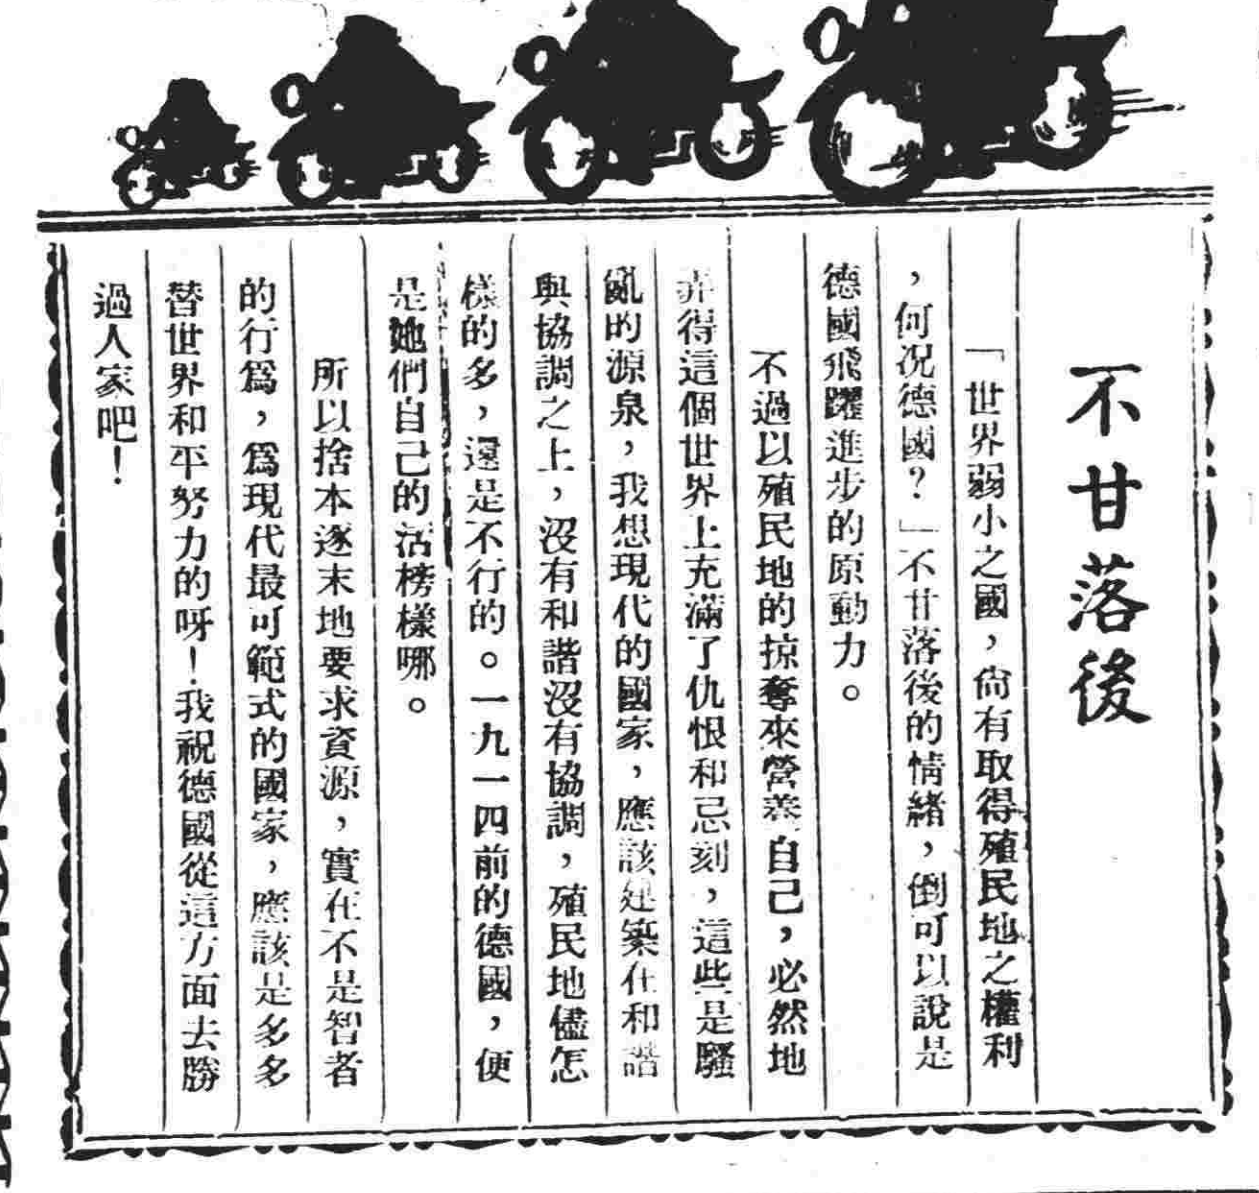 不甘落後
「世界弱小之國，尙有取得殖民地之權利
，何況德國？」不甘落後的情緒，倒可以說是
德國飛躍進步的原動力。
不過以殖民地的掠奪來營養自己，必然地
弄得這個世界上充滿了仇恨和忌刻，這些是騷
亂的源泉，我想現代的國家，應該建築在和諧
與協調之上，沒有和諧沒有協調，殖民地儘怎
樣的多，還是不行的。一九一四前的德國，便
是她們自己的活榜樣哪。
所以捨本逐末地要求資源，實在不是智者
的行爲，爲現代最可範式的國家，應該是多多
替世界和平努力的呀！我祝德國從這方面去勝
過人家吧！